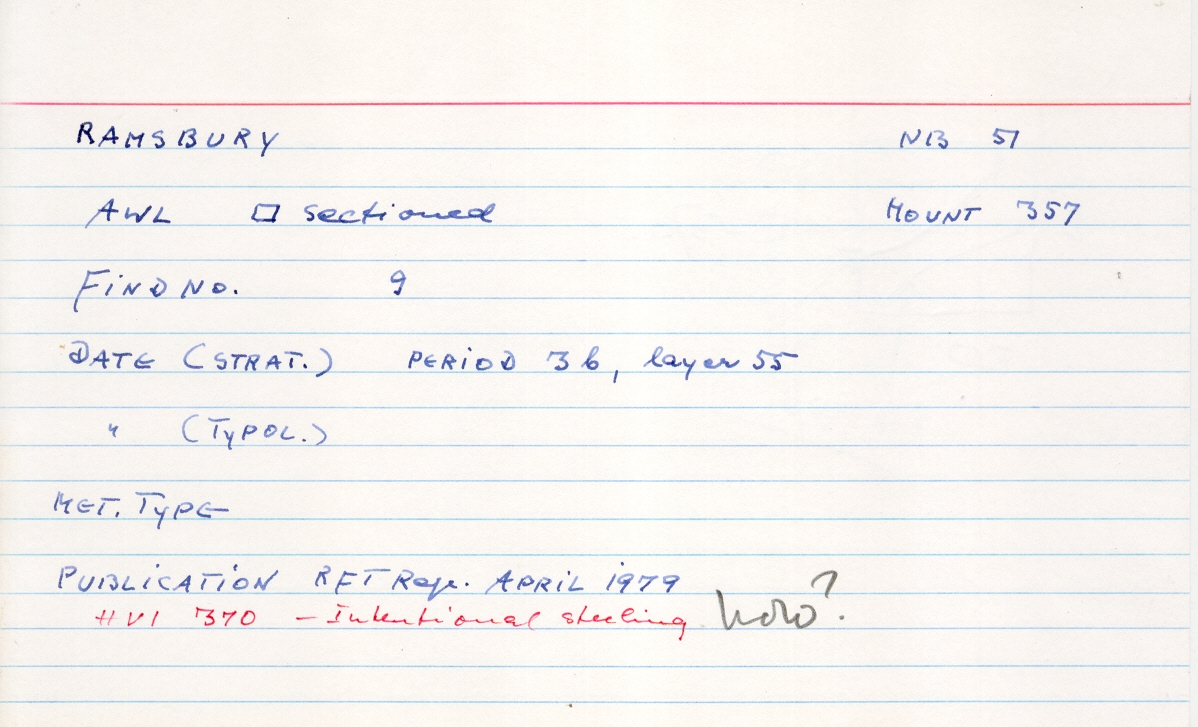 RAMSBURY NB 51
AWL □ sectioned MOUNT 357
FIND NO. 9
DATE (STRAT.) PERIOD 3b, layer 55
" (TYPOL.)
MET. TYPE
PUBLICATION RFT Rep. APRIL 1979
HV1 370 - Intentional steeling how?